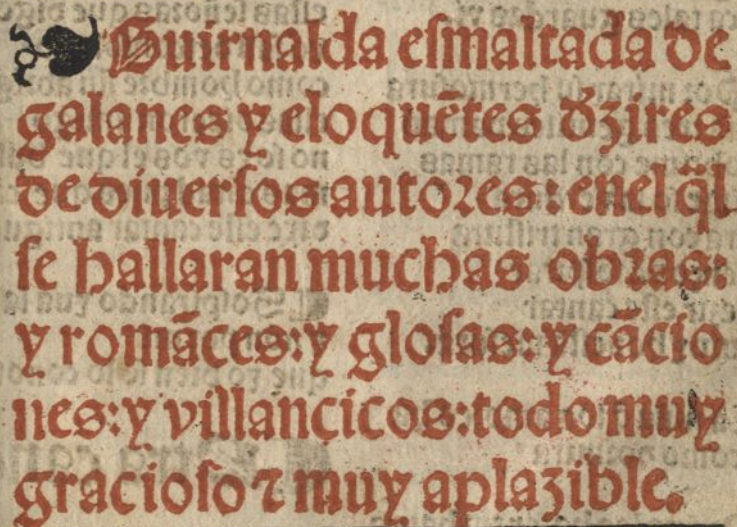 Guirnalda eſmaltada de
galanes y eloquẽtes dʼzires
de diuerſos autoꝛes: enel q̃l
ſe hallaran muchas obꝛas:
y romãces: y gloſas: y cãcio
nes: y villancicos: todo muy
gracioſo ⁊ muy aplazible.